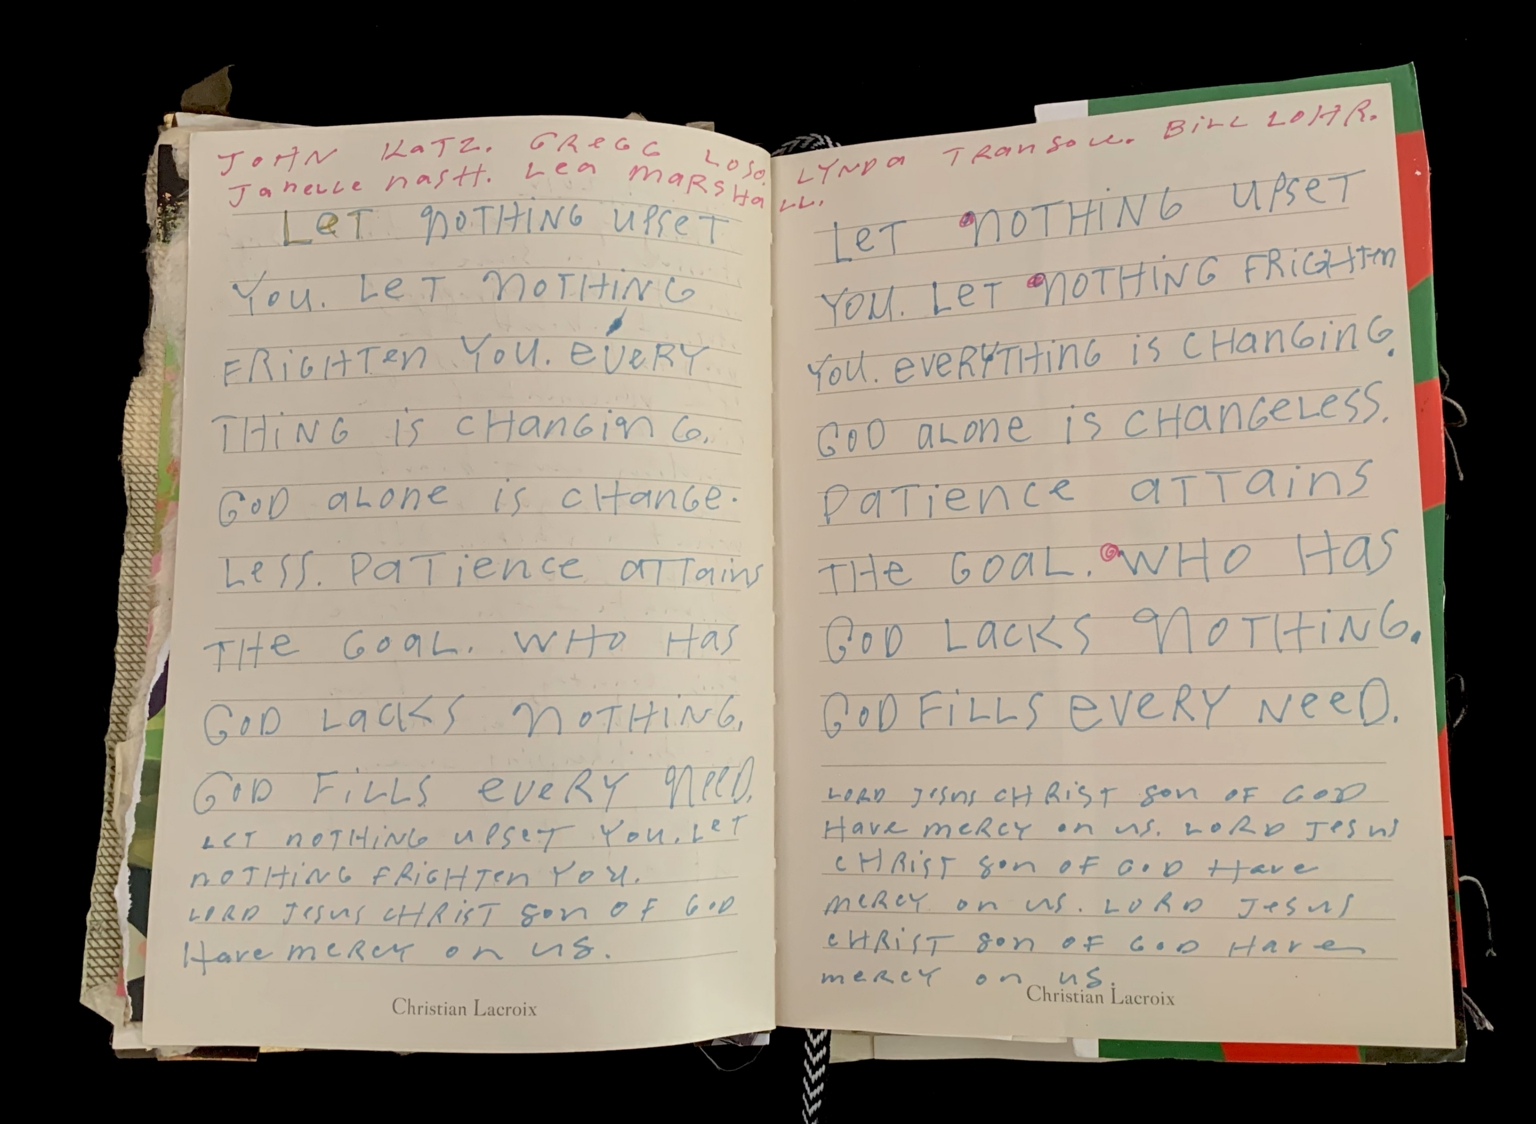 JOHN KATZ. GREGG LOSO.
Janelle nasH. Lea MaRSHa LL.
LeT nOTHiNG UPSeT
You. LeT nOTHiNG
FRiGHTen You. eveRY
THiNG iS CHanGinG.
GoD aLone iS CHanGe.
LeSS. PaTience aTTains
THe GoaL. WHo Has
GoD LacKS nOTHiNG.
GoD FiLLS eveRY neeD.
LeT noTHiNG upseT You. LeT
noTHiNG FRiGHTen You.
LORD Jesus CHRiST son oF GoD
Have meRCY on us.
Christian Lacroix
LYNDa BiLL LOHR.
LeT nOTHiNG UPSeT
YOU. LeT nOTHiNG FRiGHTen
YoU. eveRYTHiNG iS CHanGinG.
GoD aLone iS CHanGeLeSS.
PaTience aTTains
THe GoaL. WHO Has
GoD LacKS NoTHiNG.
GoD FiLLS eveRY NeeD.
LORD Jesus CHRiST son oF GoD
Have meRCY on us. LORD Jesus
CHRiST son oF GoD Have
meRCY on us. LORD Jesus
CHRiST son oF GoD Have
meRCY on us.
Christian Lacroix